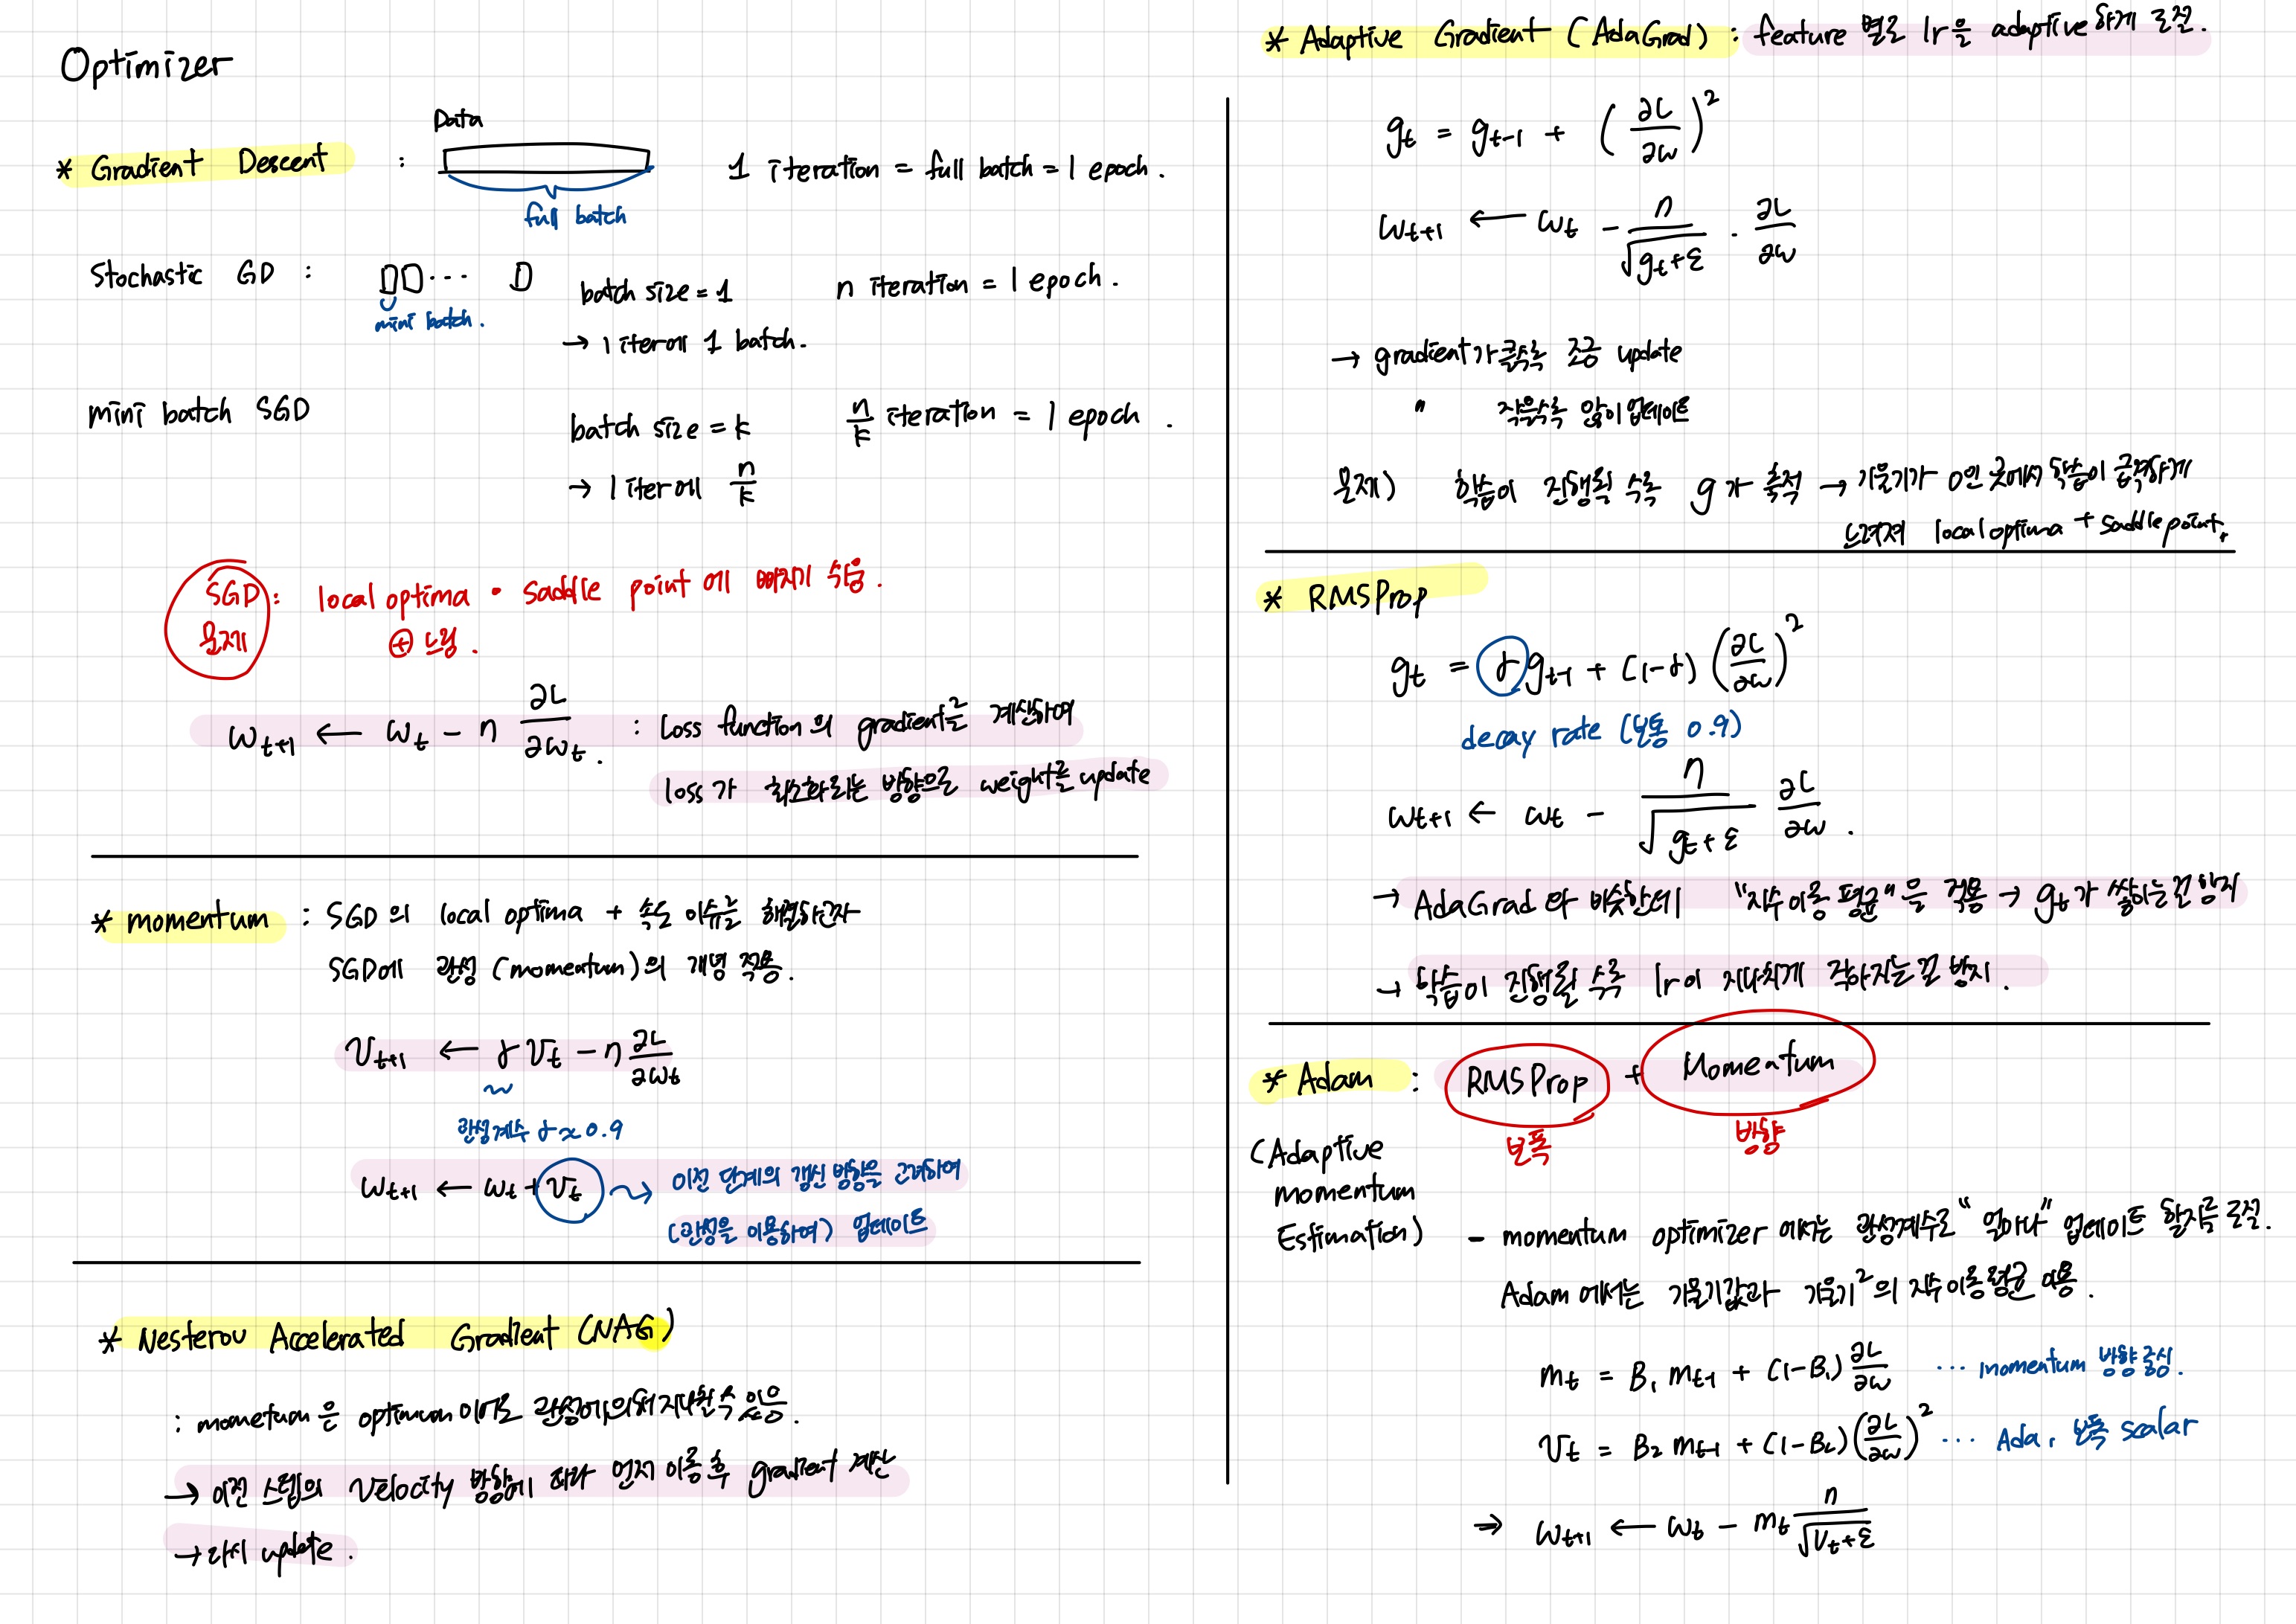 Optimizer
* Gradient Descent :
Data
full batch
1 iteration = full batch = 1 epoch.
Stochastic GD :
mini batch.
batch size = 1
n iteration = 1 epoch.
→ 1 iter에 1 batch.
mini batch SGD
batch size = k
n/k iteration = 1 epoch.
→ 1 iter에 n/k
SGD 문제 : local optima · saddle point 에 빠지기 쉬움.
⊕ 느림.
w_{t+1} ← w_t − η ∂L/∂w_t. : Loss function의 gradient를 계산하여
loss가 최소화되는 방향으로 weight를 update
* momentum : SGD의 local optima + 속도 이슈를 해결하고자
SGD에 관성 (momentum)의 개념 적용.
v_{t+1} ← γ v_t − η ∂L/∂w_t
관성계수 γ ≈ 0.9
w_{t+1} ← w_t + v_t ⇝ 이전 단계의 갱신 방향을 고려하여
(관성을 이용하여) 업데이트
* Nesterov Accelerated Gradient (NAG)
: mometum은 optimum이어도 관성에의해 지나칠 수 있음.
→ 이전 스텝의 Velocity 방향에 따라 먼저 이동 후 gradient 계산
→ 다시 update.
* Adaptive Gradient (AdaGrad) : feature 별로 lr을 adaptive하게 조절.
g_t = g_{t-1} + (∂L/∂w)²
w_{t+1} ← w_t − η/√(g_t+ε) · ∂L/∂w
→ gradient가 클수록 조금 update
〃 작을수록 많이 업데이트
문제) 학습이 진행될 수록 g가 축적 → 기울기가 0인 곳에서 학습이 급격하게
느려져 local optima + saddle point.
* RMSProp
g_t = γ g_{t-1} + (1-γ) (∂L/∂w)²
decay rate (보통 0.9)
w_{t+1} ← w_t − η/√(g_t+ε) ∂L/∂w.
→ AdaGrad 와 비슷한데 "지수이동 평균"을 적용 → g_t가 쌓이는걸 방지
→ 학습이 진행될 수록 lr이 지나치게 작아지는걸 방지.
* Adam : RMSProp + Momentum
보폭 방향
(Adaptive
momentum
Estimation)
- momentum optimizer 에서는 관성계수로 "얼마나" 업데이트 할지를 조절.
Adam 에서는 기울기값과 기울기²의 지수이동평균 이용.
m_t = B₁ m_{t-1} + (1-B₁) ∂L/∂w ... momentum 방향 중심.
v_t = B₂ m_{t-1} + (1-B₂) (∂L/∂w)² ... Ada, 보폭 scalar
⇒ w_{t+1} ← w_t − m_t η/√(v_t+ε)